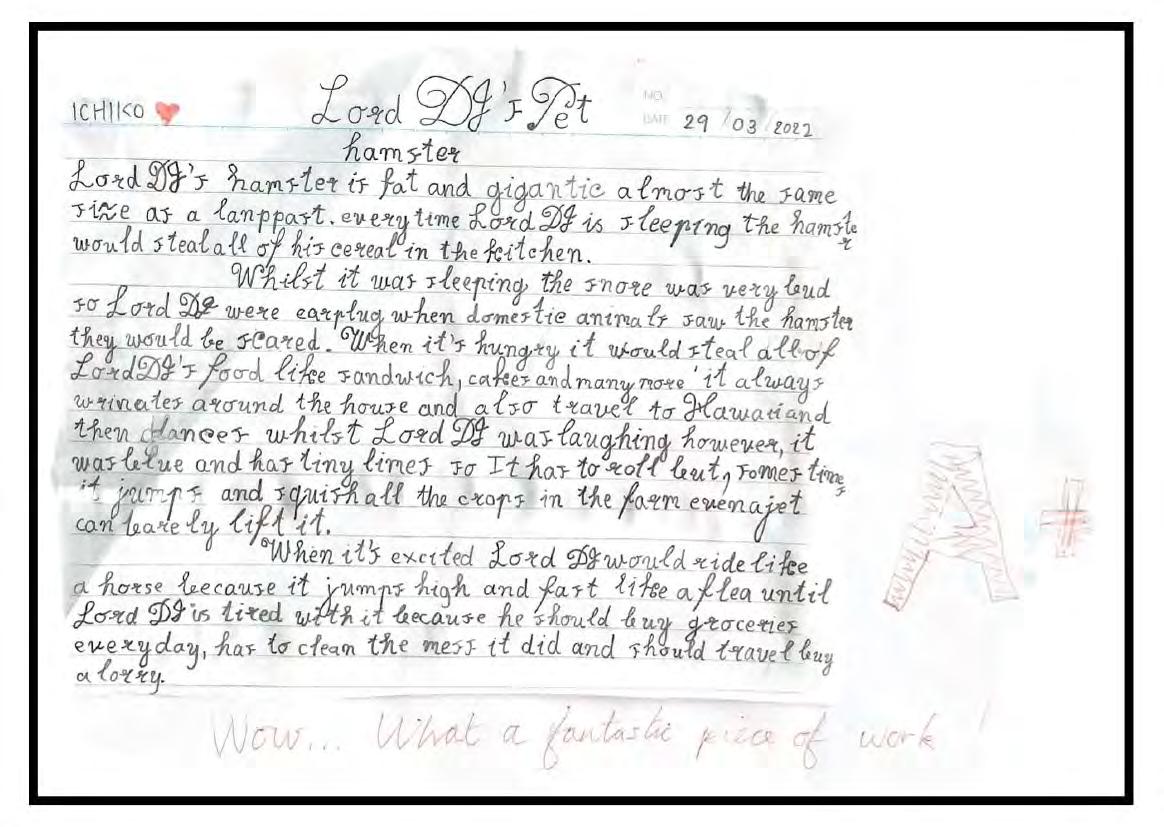 ICHIKO
Lord DJ's Pet
NO.
DATE 29 / 03 / 2022
hamster
Lord DJ's hamster is fat and gigantic almost the same
size as a lanppart. every time Lord DJ is sleeping the hamster
would steal all of his cereal in the kitchen.
Whilst it was sleeping the snore was very loud
so Lord DJ were earplug when domestic animals saw the hamster
they would be scared. When it's hungry it would steal all of
Lord DJ's food like sandwich, cakes and many more it always
wrinates around the house and also travel to Hawaii and
then dances whilst Lord DJ was laughing however, it
was blue and has tiny limes so It has to roll but, somes times
it jumps and squish all the crops in the farm even a jet
can barely lift it.
When it's excited Lord DJ would ride like
a horse because it jumps high and fast like a flea until
Lord DJ is tired with it because he should buy groceries
everyday, has to clean the mess it did and should travel buy
a lorry.
A +
Wow... What a fantastic piece of work!